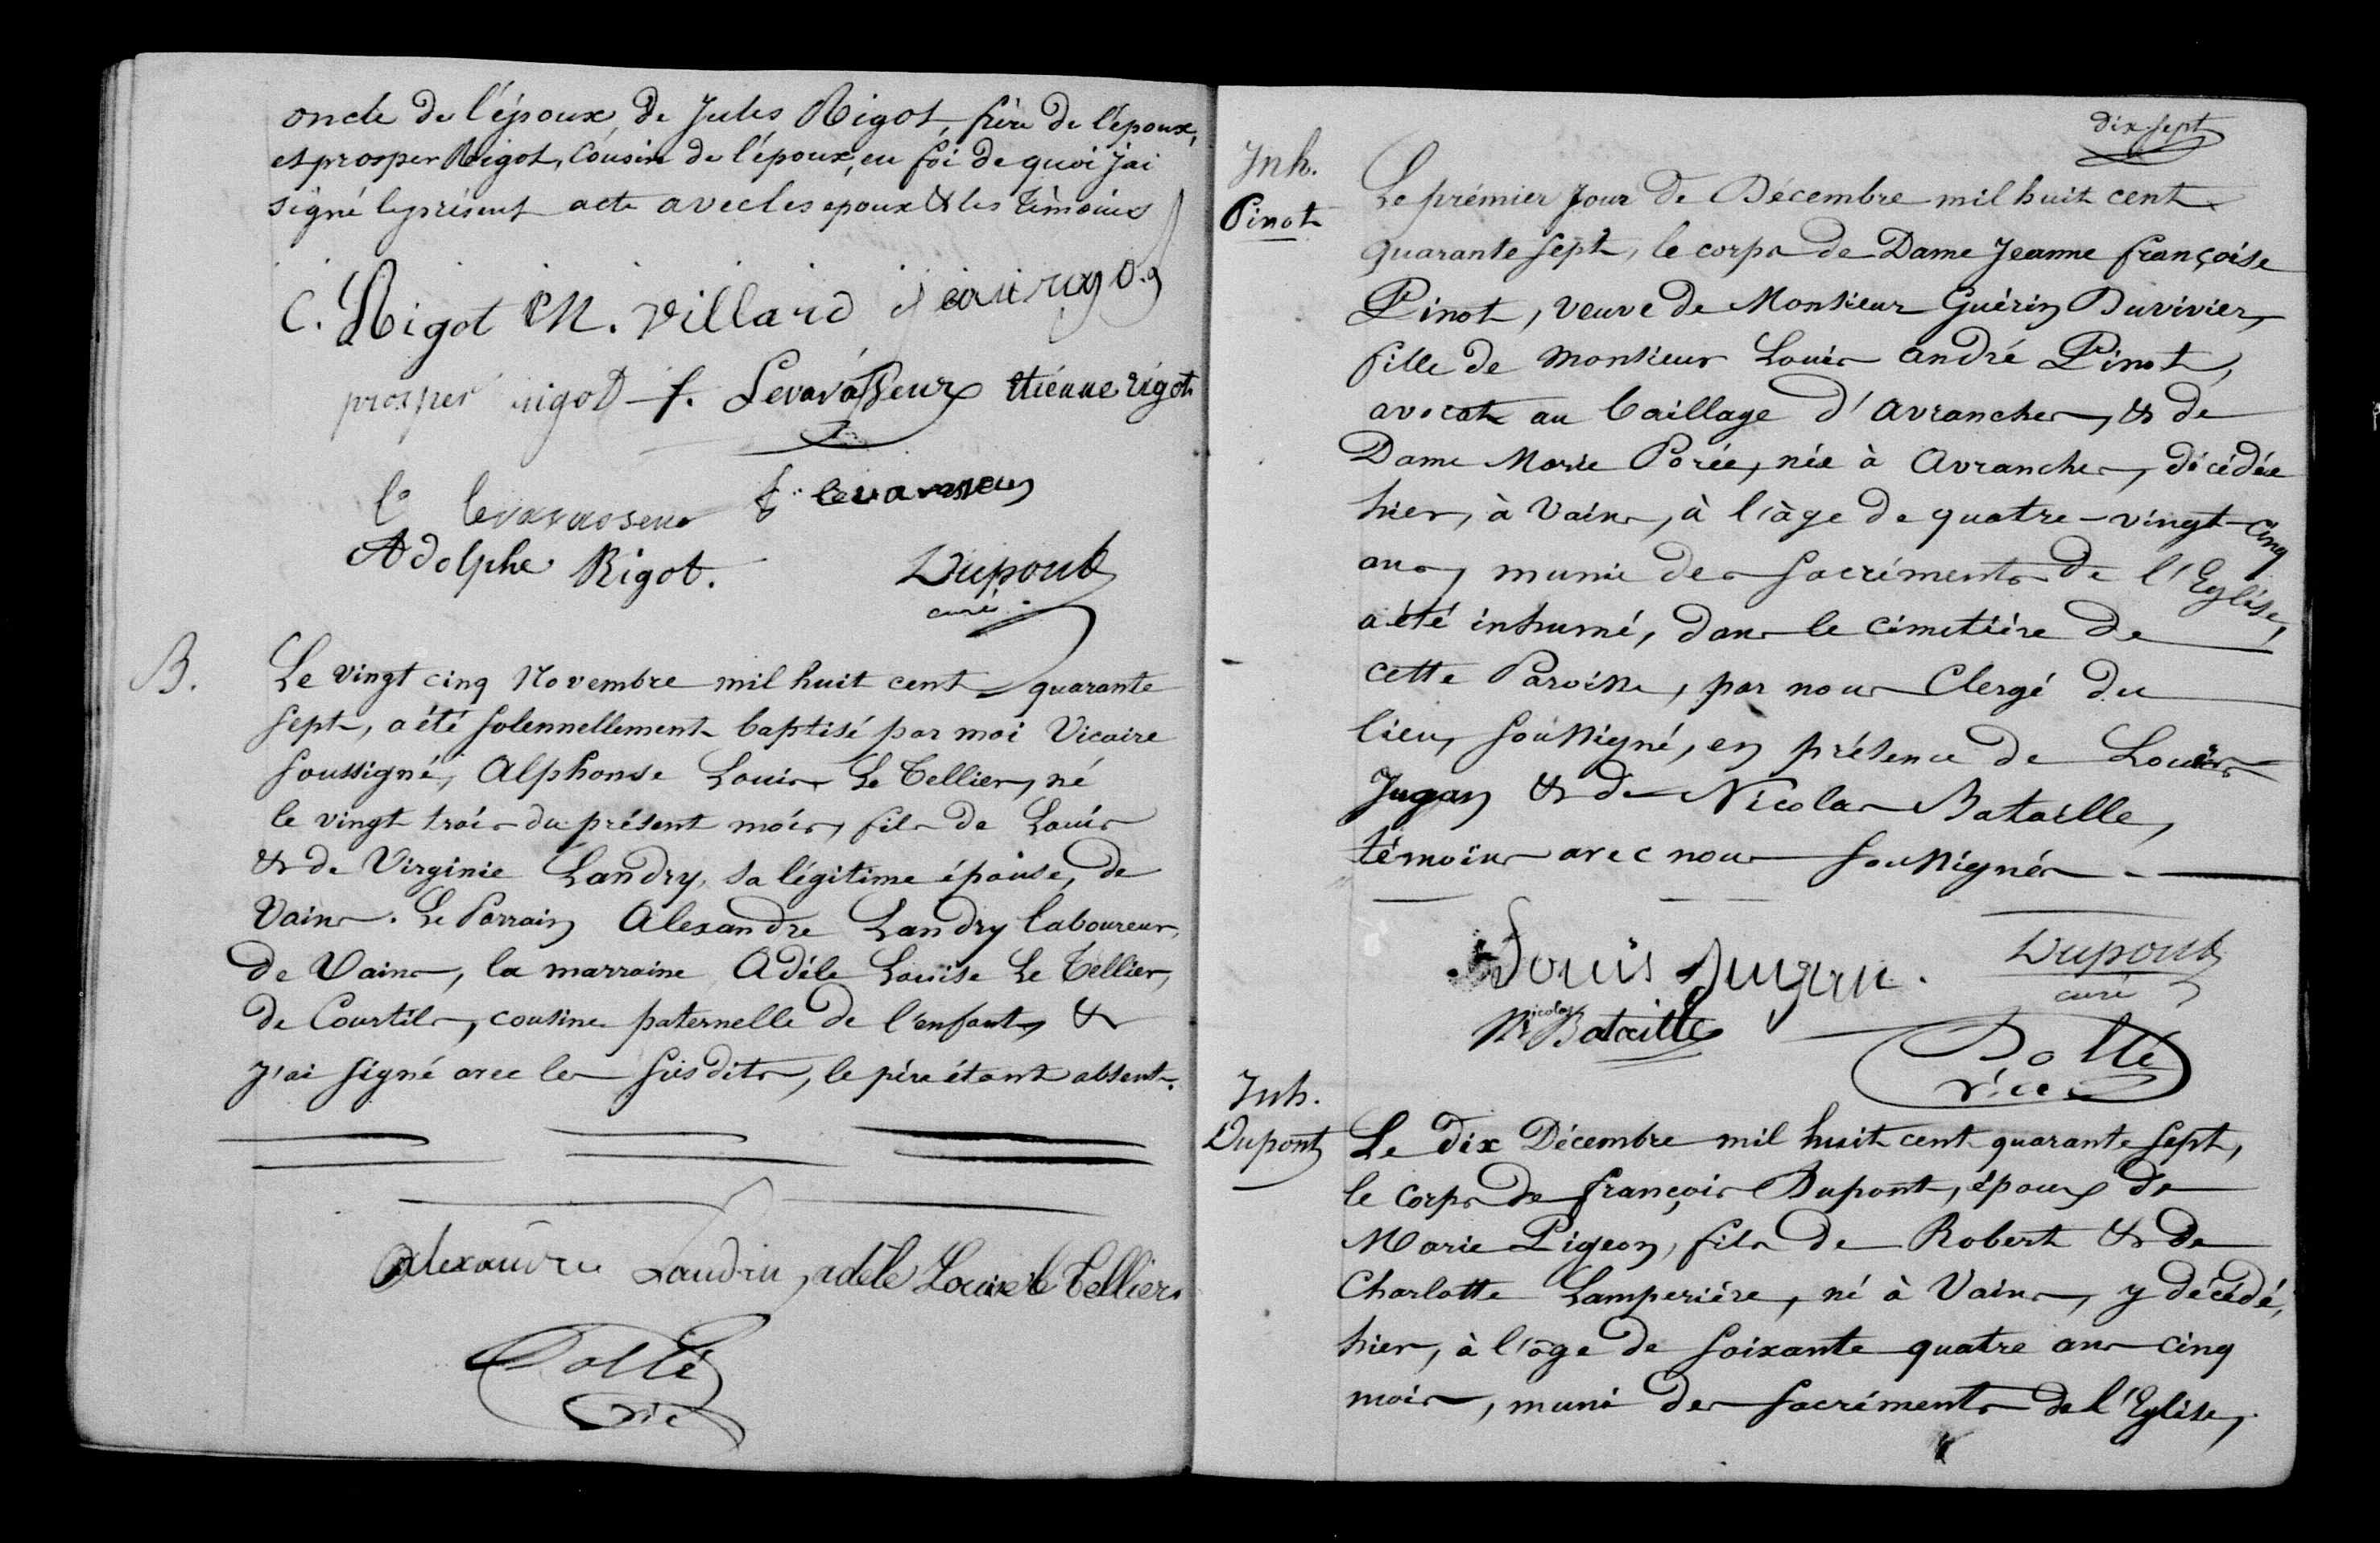 oncle de l'époux, de Jules Rigot, frère de l'époux,
et prosper Rigot, cousin de l'époux, en foi de quoi j'ai
signé le présent acte avec les epoux & les témoins
C. Rigot M. Villard jean rigot
prosper rigot f. Levavasseur etienne rigot
levavasseur f. levavasseur
Adolphe Rigot. Dupont
curé
B.
Le vingt cinq Novembre mil huit cent quarante
sept, a été solennellement baptisé par moi Vicaire
soussigné, Alphonse Louis Le Tellier, né
le vingt trois du présent mois, fils de Louis
& de Virginie Landry, sa légitime épouse, de
Vains. Le Parrain Alexandre Landry laboureur,
de Vains, la marraine Adéle Louise Le Tellier,
de Courtils, cousine paternelle de l'enfant, &
j'ai signé avec les susdits, le père étant absent.
Alexandre Landri adèle Louise le Tellier
Dollé
vic
dix-sept
Inh.
Pinot
Le prémier jour de Décembre mil huit cent
quarante sept, le corps de Dame Jeanne françoise
Pinot, veuve de Monsieur Guérin Duvivier,
fille de Monsieur Louis andré Pinot,
avocat au baillage d'avranches, & de
Dame Marie Porée, née à Avranches, décédée
hier, à Vains, à l'âge de quatre-vingt-cinq
ans, munie des sacréments de l'Eglise,
a été inhumé, dans le cimetiére de
cette Paroisse, par nous Clergé du
lieu, soussigné, en présence de Louis
Jugan & de Nicolas Bataille,
témoins avec nous soussignés
Louis Jugan. Dupont
curé
Nicolas Bataille
Dollé
vice
Inh.
Dupont
Le dix Décembre mil huit cent quarante sept,
le corps de françois Dupont, époux de
Marie Pigeon, fils de Robert & de
Charlotte Lamperiére, né à Vains, y décédé,
hier, à l'âge de soixante quatre ans cinq
mois, muni des sacréments de l'Eglise,